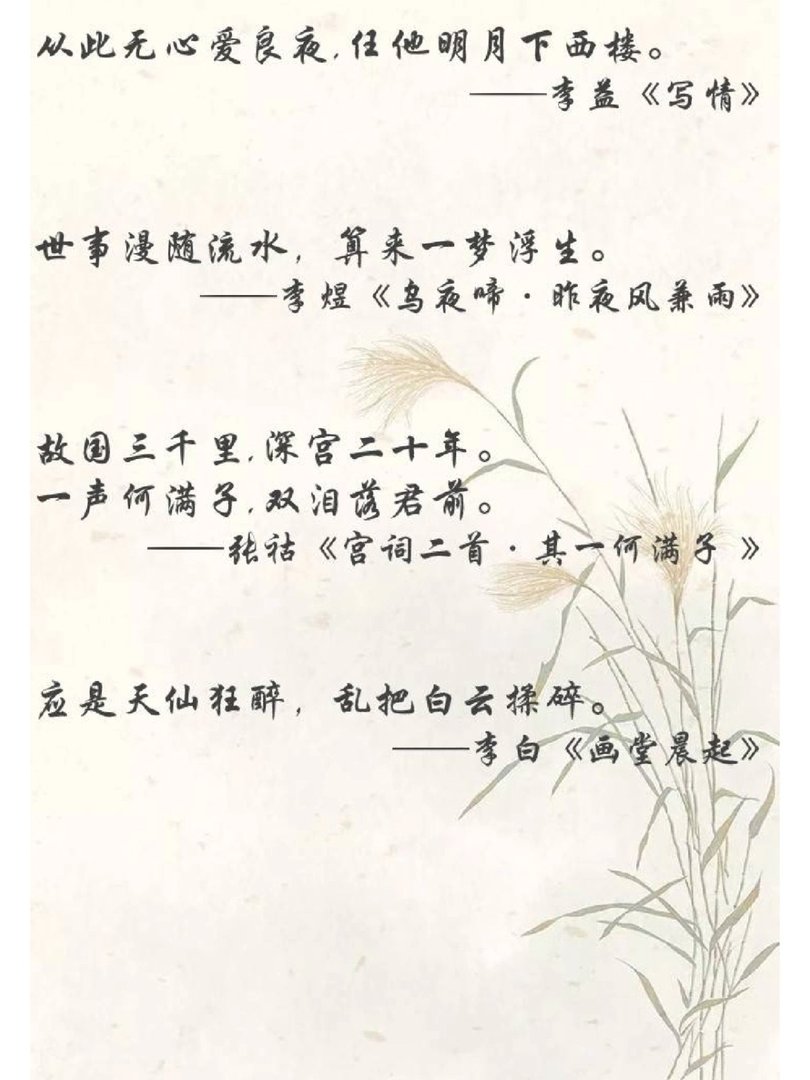 从此无心爱良夜,任他明月下西楼。
——李益《写情》
世事漫随流水，算来一梦浮生。
——李煜《乌夜啼·昨夜风兼雨》
故国三千里,深宫二十年。
一声何满子,双泪落君前。
——张祜《宫词二首·其一何满子 》
应是天仙狂醉，乱把白云揉碎。
——李白《画堂晨起》